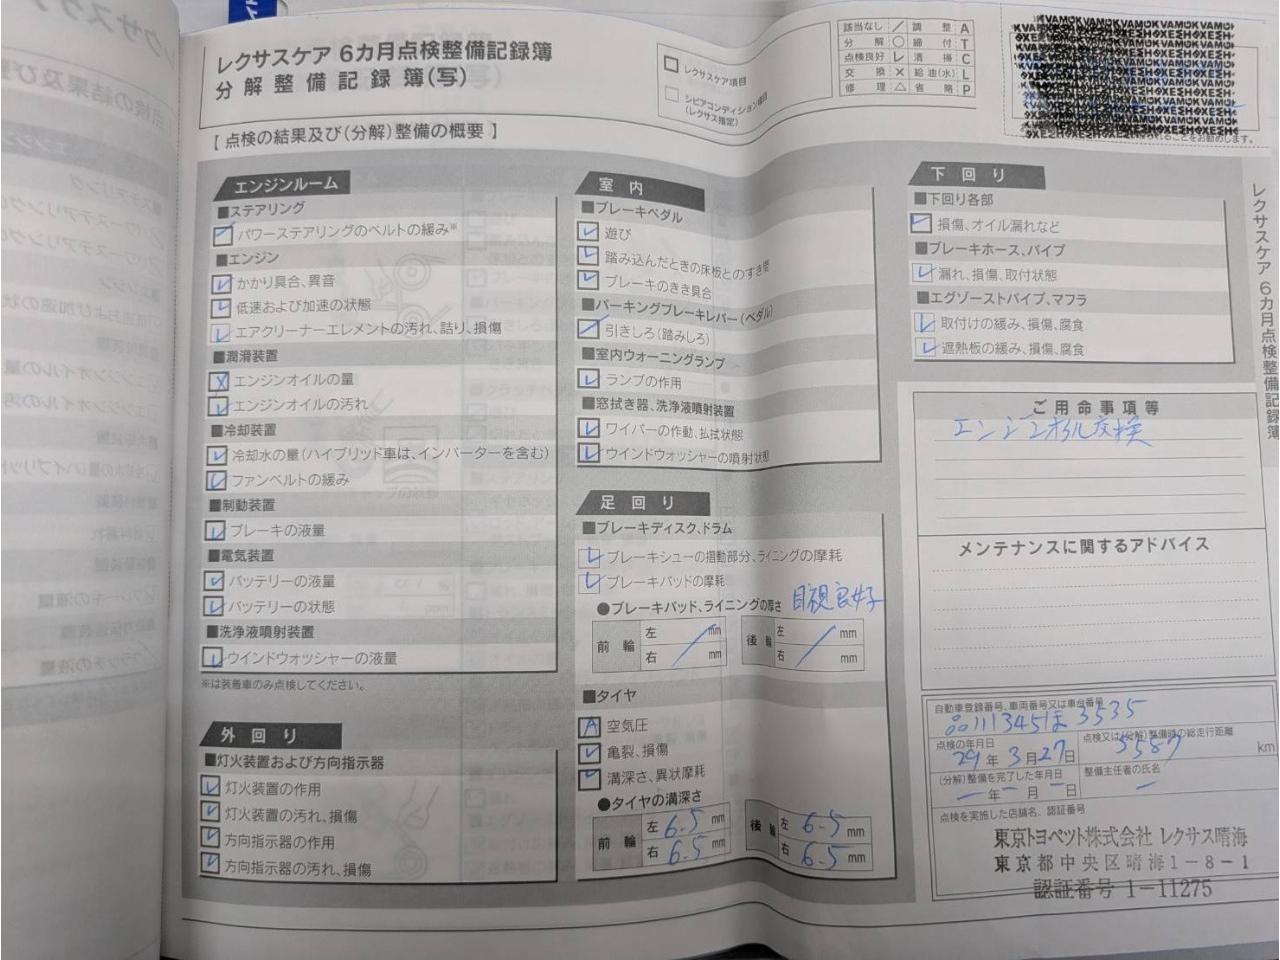 レクサスケア 6カ月点検整備記録簿
分解整備記録簿(写)
レクサスケア項目
シビアコンディション項目
(レクサス指定)
該当なし ／ 調整 A
分解 ○ 締付 T
点検良好 レ 清掃 C
交換 × 給油(水) L
修理 △ 省略 P
ることをお勧めします。
【 点検の結果及び(分解)整備の概要 】
エンジンルーム
■ステアリング
パワーステアリングのベルトの緩み※
■エンジン
かかり具合、異音
低速および加速の状態
エアクリーナーエレメントの汚れ、詰り、損傷
■潤滑装置
エンジンオイルの量
エンジンオイルの汚れ
■冷却装置
冷却水の量(ハイブリッド車は、インバーターを含む)
ファンベルトの緩み
■制動装置
ブレーキの液量
■電気装置
バッテリーの液量
バッテリーの状態
■洗浄液噴射装置
ウインドウォッシャーの液量
※は装着車のみ点検してください。
外回り
■灯火装置および方向指示器
灯火装置の作用
灯火装置の汚れ、損傷
方向指示器の作用
方向指示器の汚れ、損傷
室内
■ブレーキペダル
遊び
踏み込んだときの床板とのすき間
ブレーキのきき具合
■パーキングブレーキレバー(ペダル)
引きしろ(踏みしろ)
■室内ウォーニングランプ
ランプの作用
■窓拭き器、洗浄液噴射装置
ワイパーの作動、払拭状態
ウインドウォッシャーの噴射状態
足回り
■ブレーキディスク、ドラム
ブレーキシューの摺動部分、ライニングの摩耗
ブレーキパッドの摩耗
●ブレーキパッド、ライニングの厚さ 目視良好
前輪 左 ／ mm 右 mm
後輪 左 ／ mm 右 mm
■タイヤ
A 空気圧
亀裂、損傷
溝深さ、異状摩耗
●タイヤの溝深さ
前輪 左 6.5 mm 右 6.5 mm
後輪 左 6.5 mm 右 6.5 mm
下回り
■下回り各部
損傷、オイル漏れなど
■ブレーキホース、パイプ
漏れ、損傷、取付状態
■エグゾーストパイプ、マフラ
取付けの緩み、損傷、腐食
遮熱板の緩み、損傷、腐食
ご用命事項等
エンジンオイル交換
メンテナンスに関するアドバイス
自動車登録番号、車両番号又は車台番号
品川345ほ3535
点検の年月日
29年3月27日
点検又は(分解)整備時の総走行距離
5587 km
(分解)整備を完了した年月日
―年―月―日
整備主任者の氏名
―
点検を実施した店舗名、認証番号
東京トヨペット株式会社 レクサス晴海
東京都中央区晴海1-8-1
認証番号 1-11275
レクサスケア6カ月点検整備記録簿